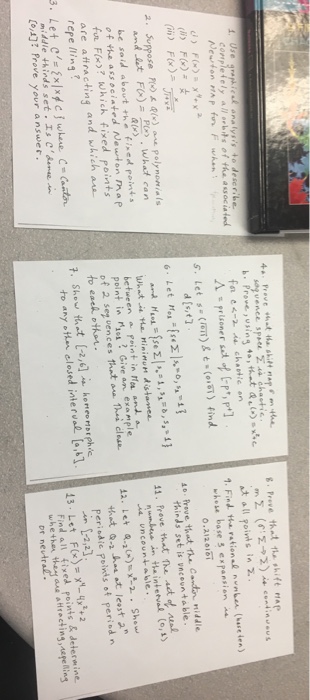 1. Use graphical analysis to describe
completely all orbits of the associated
Newton map for F when:
(i) F(x) = 4-2x
(ii) F(x) =
(iii) F(x) =
2. Suppose P(x) & Q(x) are polynomials
and let F(x) = P(x)/Q(x). What can
be said about the fixed points
of the associated Newton map
for F(x)? Which fixed points
are attracting and which are
repelling?
3. Let C' = {x | x ∉ C} where C = Cantor
middle thirds set. Is C' dense in
[0,1]? Prove your answer.
4a. Prove that the shift map σ on the
sequence space Σ is chaotic.
b. Prove, using 4a, that Q_c(x) = x²+c
for c<-2 is chaotic on
Λ = prisoner set of [-p+, p+].
5. Let s = (1011) & t = (0101) find
d[s,t].
6. Let M₀₁ = {s∈Σ | s₀=0, s₁=1}
and M₁₀₁ = {s∈Σ | s₀=1, s₁=0, s₂=1}
What is the minimum distance
between a point in M₀₁ and a
point in M₁₀₁? Give an example
of 2 sequences that are this close
to each other.
7. Show that [-2,6] is homeomorphic
to any other closed interval [a,b].
8. Prove that the shift map
on Σ (σ:Σ→Σ) is continuous
at all points in Σ.
9. Find the rational number (base ten)
whose base 3 expansion is
0.2120101
10. Prove that the Cantor middle
thirds set is uncountable.
11. Prove that the set of real
numbers in the interval (0,1)
is uncountable.
12. Let Q₋₂(x) = x²-2. Show
that Q₋₂ has at least 2ⁿ
periodic points of period n
in [-2,2].
13. Let F(x) = x³-4x²+2
Find all fixed points & determine
whether they are attracting, repelling
or neutral.